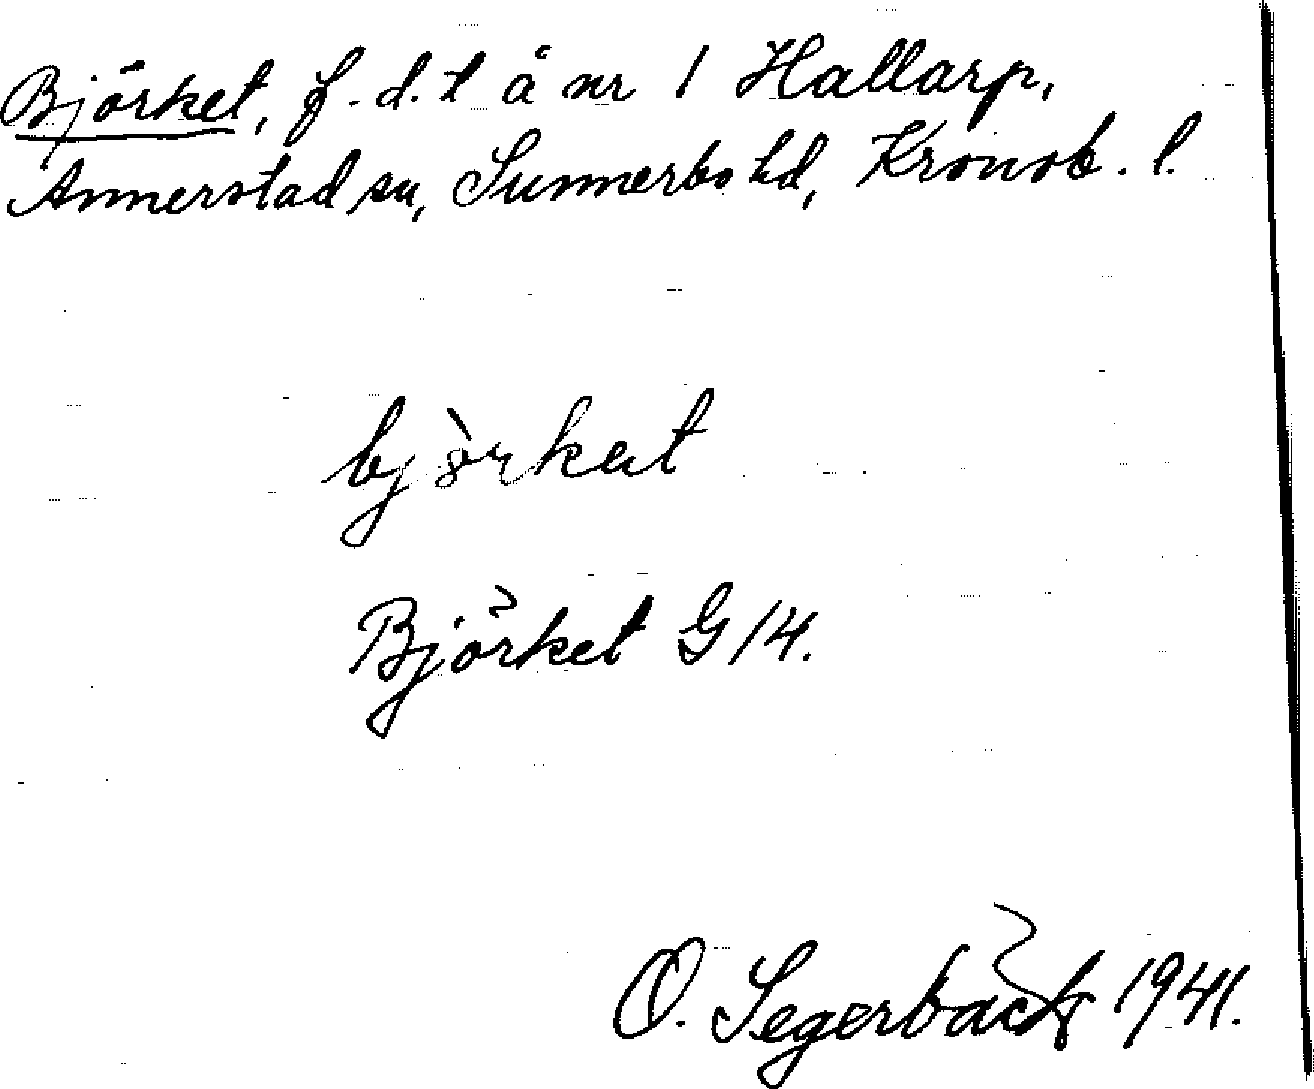 Björket, f.d. t å nr 1 Hallarp,
Annerstad sn, Sunnerbo hd, Kronob. l.
bjòrkat
Björket G 14.
O. Segerbäck 1941.